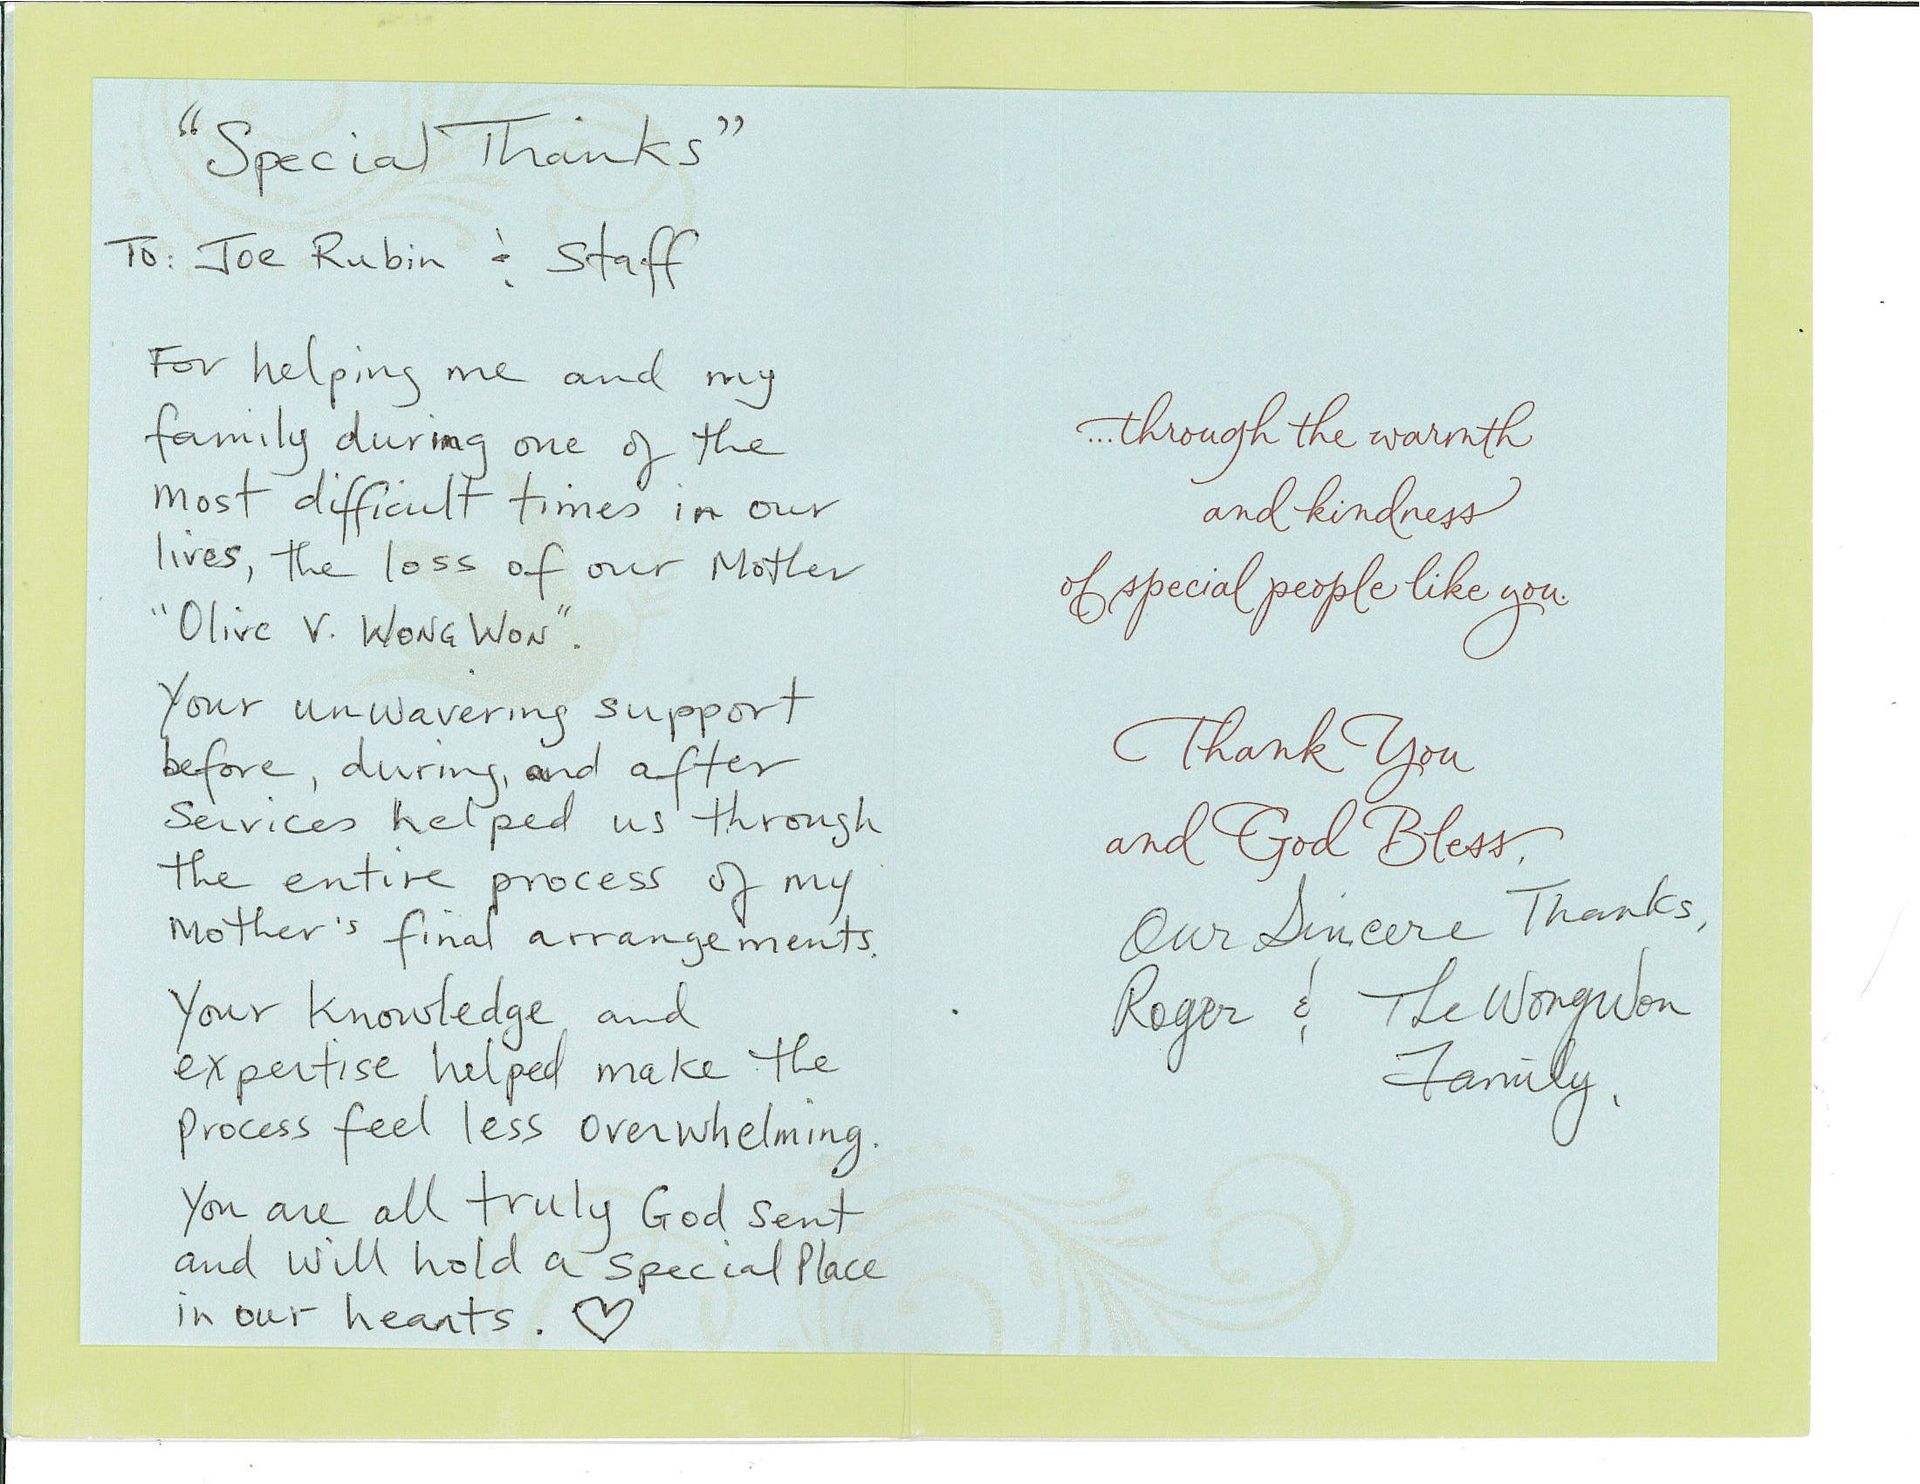 “Special Thanks”
To: Joe Rubin & Staff
For helping me and my
family during one of the
most difficult times in our
lives, the loss of our Mother
"Olive V. WONG WON".
Your unwavering support
before, during, and after
Services helped us through
the entire process of my
Mother's final arrangements.
Your knowledge and
expertise helped make the
process feel less overwhelming.
You are all truly God sent
and will hold a special Place
in our hearts. ♡
...through the warmth
and kindness
of special people like you.
Thank You
and God Bless.
Our Sincere Thanks,
Roger & The WongWon
Family.